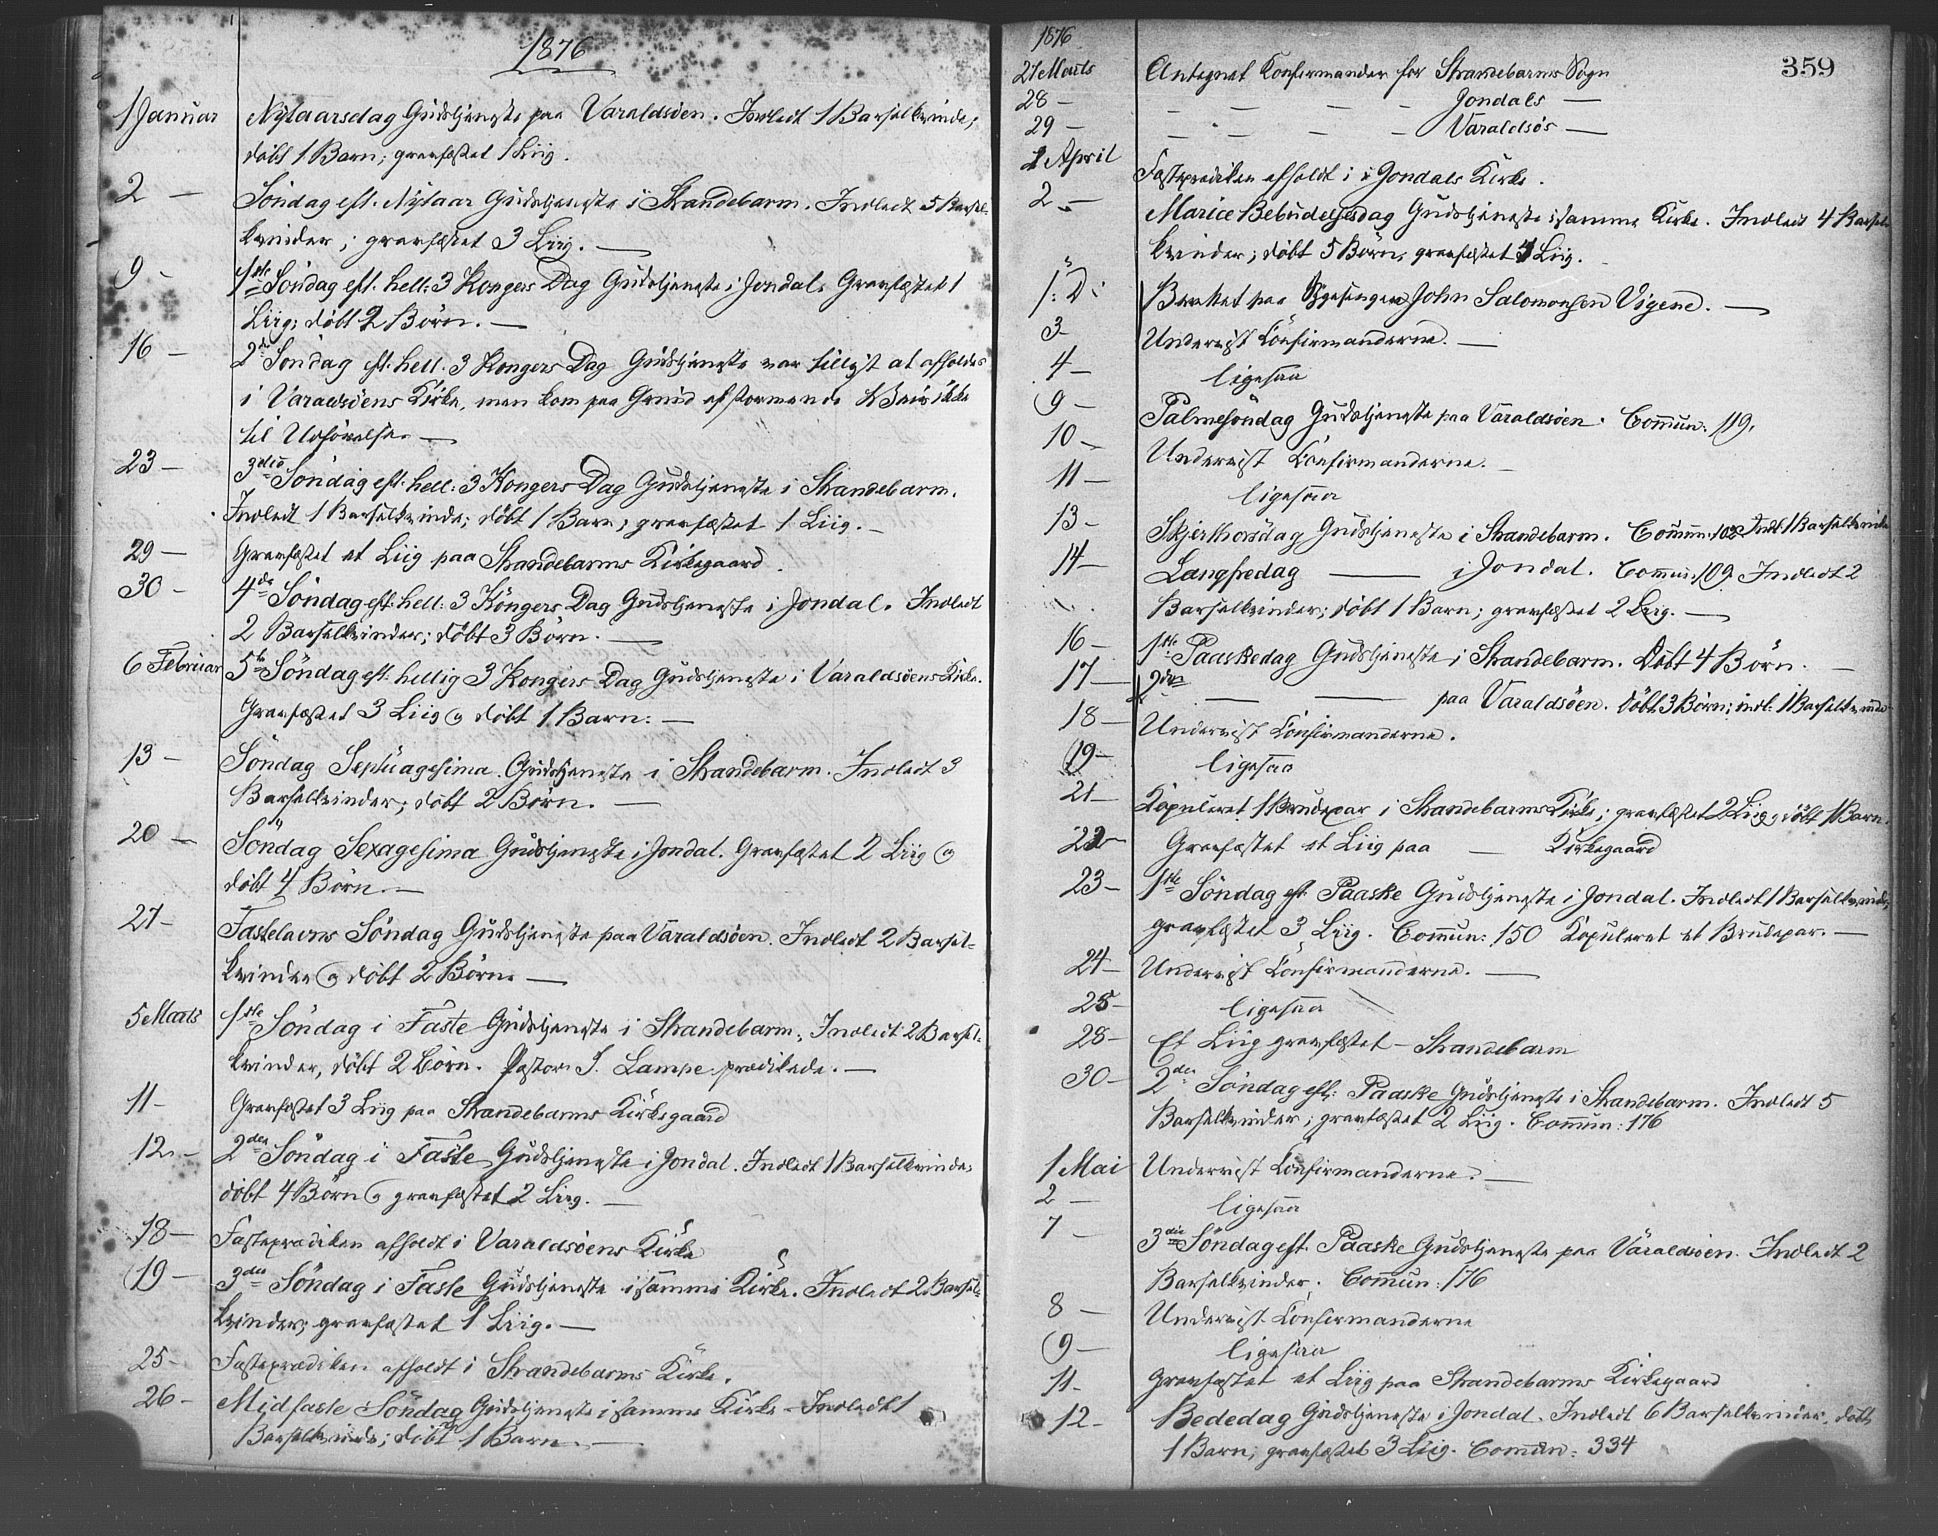 1876
1 Januar Nytaarsdag Gudstjeneste paa Varaldsöen. Indledt 1 Barselkvinde;
döbt 1 Barn; gravfæstet 1 Liig.
2 — Söndag eft. Nytaar Gudstjeneste i Strandebarm. Indledt 5 Barsel-
kvinder; gravfæstet 3 Liig. —
9 - 1ste Söndag eft. hell: 3 Kongers Dag Gudstjeneste i Jondal. Gravfæstet 1
Liig; döbt 2 Börn. —
16 — 2den Söndag eft. hell. 3 Kongers Dag Gudstjeneste var tillyst at afholdes
i Varaldsöens Kirke, men kom paa Grund af stormende Veir ikke
til Udförelse. —
23 — 3die Söndag eft. hell: 3 Kongers Dag Gudstjeneste i Strandebarm.
Indledt 1 Barselkvinde; döbt 1 Barn; gravfæstet 1 Liig. —
29 — Gravfæstet et Liig paa Strandebarms Kirkegaard.
30 - 4de Söndag eft. hell: 3 Kongers Dag Gudstjeneste i Jondal. Indledt
2 Barselkvinder; döbt 3 Börn. —
6 Februar 5te Söndag eft. hellig 3 Kongers Dag Gudstjeneste i Varaldsöens Kirke.
Gravfæstet 3 Liig og döbt 1 Barn. —
13 — Söndag Septuagesima Gudstjeneste i Strandebarm. Indledt 3
Barselkvinder; döbt 2 Börn. —
20 — Söndag Sexagesima Gudstjeneste i Jondal. Gravfæstet 2 Liig og
döbt 4 Börn. —
27 — Fastelavns Söndag Gudstjeneste paa Varaldsöen. Indledt 2 Barsel-
kvinder og döbt 2 Börn. —
5 Marts 1ste Söndag i Faste Gudstjeneste i Strandebarm. Indledt 2 Barsel-
kvinder, döbt 2 Börn. Pastor J. Lampe prædikede. —
11 - Gravfæstet 3 Liig paa Strandebarms Kirkegaard
12 — 2den Söndag i Faste Gudstjeneste i Jondal. Indledt 1 Barselkvinde;
döbt 4 Börn og gravfæstet 2 Liig. —
18 — Fasteprædiken afholdt i Varaldsöens Kirke
19 — 3die Söndag i Faste Gudstjeneste i samme Kirke. Indledt 2 Barsel-
kvinder; gravfæstet 1 Liig. —
25 - Fasteprædiken afholdt i Strandebarms Kirke.
26 - Midfaste Söndag Gudstjeneste i samme Kirke - Indledt 1
Barselkvinde; döbt 1 Barn. —
1876 359
27 Marts Antegnet Konfirmander for Strandebarms Sogn
28 — — — — — Jondals —
29 — — — — — Varaldsös —
1 April Fasteprædiken afholdt i Jondals Kirke.
2 — Mariæ Bebudelsesdag Gudstjeneste i samme Kirke. Indledt 4 Barsel-
kvinder; döbt 5 Börn, gravfæstet 4 Liig.
s: D: Berettet paa Sygesengen John Salomonsen Vigene. —
3 - Underviist Konfirmanderne. —
4 — ligesaa
9 — Palmesöndag Gudstjeneste paa Varaldsöen. Commun: 119.
10 — Underviist Konfirmanderne. —
11 — ligesaa
13 - Skjerthorsdag Gudstjeneste i Strandebarm. Commun: 102 Indl. 1 Barselkvinde
14 — Langfredag — i Jondal. Commun: 109. Indledt 2
Barselkvinder; döbt 1 Barn; gravfæstet 2 Liig. —
16 - 1ste Paaskedag Gudstjeneste i Strandebarm. Döbt 4 Börn. —
17 — 2den — — paa Varaldsöen. Döbt 3 Börn; indl: 1 Barselkvinde
18 — Underviist Konfirmanderne.
19 — ligesaa
21 — Kopuleret 1 Brudepar i Strandebarms Kirke; gravfæstet 2 Liig og döbt 1 Barn.
22 — Gravfæstet et Liig paa — Kirkegaard
23 — 1ste Söndag eft. Paaske Gudstjeneste i Jondal. Indledt 1 Barselkvinde;
gravfæstet 3 Liig. Commun: 150 Kopuleret et Brudepar. —
24 — Underviist Konfirmanderne. —
25 — ligesaa
28 — Et Liig gravfæstet - Strandebarm
30 — 2den Söndag eft. Paaske Gudstjeneste i Strandebarm. Indledt 5
Barselkvinder; gravfæstet 2 Liig. Commun: 176
1 Mai Underviist Konfirmanderne. —
2 — ligesaa
7 — 3die Söndag eft. Paaske Gudstjeneste paa Varaldsöen. Indledt 2
Barselkvinder. Commun: 176
8 — Underviist Konfirmanderne
9 — ligesaa
11 - Gravfæstet et Liig paa Strandebarms Kirkegaard
12 - Bededag Gudstjeneste i Jondal. Indledt 6 Barselkvinder, döbt
1 Barn; gravfæstet 3 Liig. Commun: 334